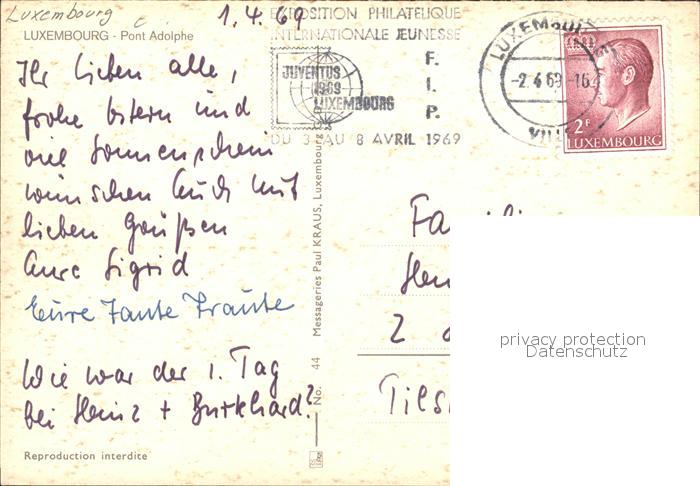 Luxembourg
1.4.69
LUXEMBOURG - Pont Adolphe
EXPOSITION PHILATELIQUE
INTERNATIONALE JEUNESSE
JUVENTUS
1969
LUXEMBOURG
F.
I.
P.
DU 3 AU 8 AVRIL 1969
LUXEMBOURG
-2.4.69-16
VILLE
2F
LUXEMBOURG
Ihr lieben alle,
frohe Ostern und
viel Sonnenschein
wünschen Euch mit
lieben Grüßen
Eure Sigrid
Eure Tante Traute
Wie war der 1. Tag
bei Heinz + Burkhard?
Reproduction interdite
No. 44 Messageries Paul KRAUS, Luxembourg
Fa
2
privacy protection
Datenschutz